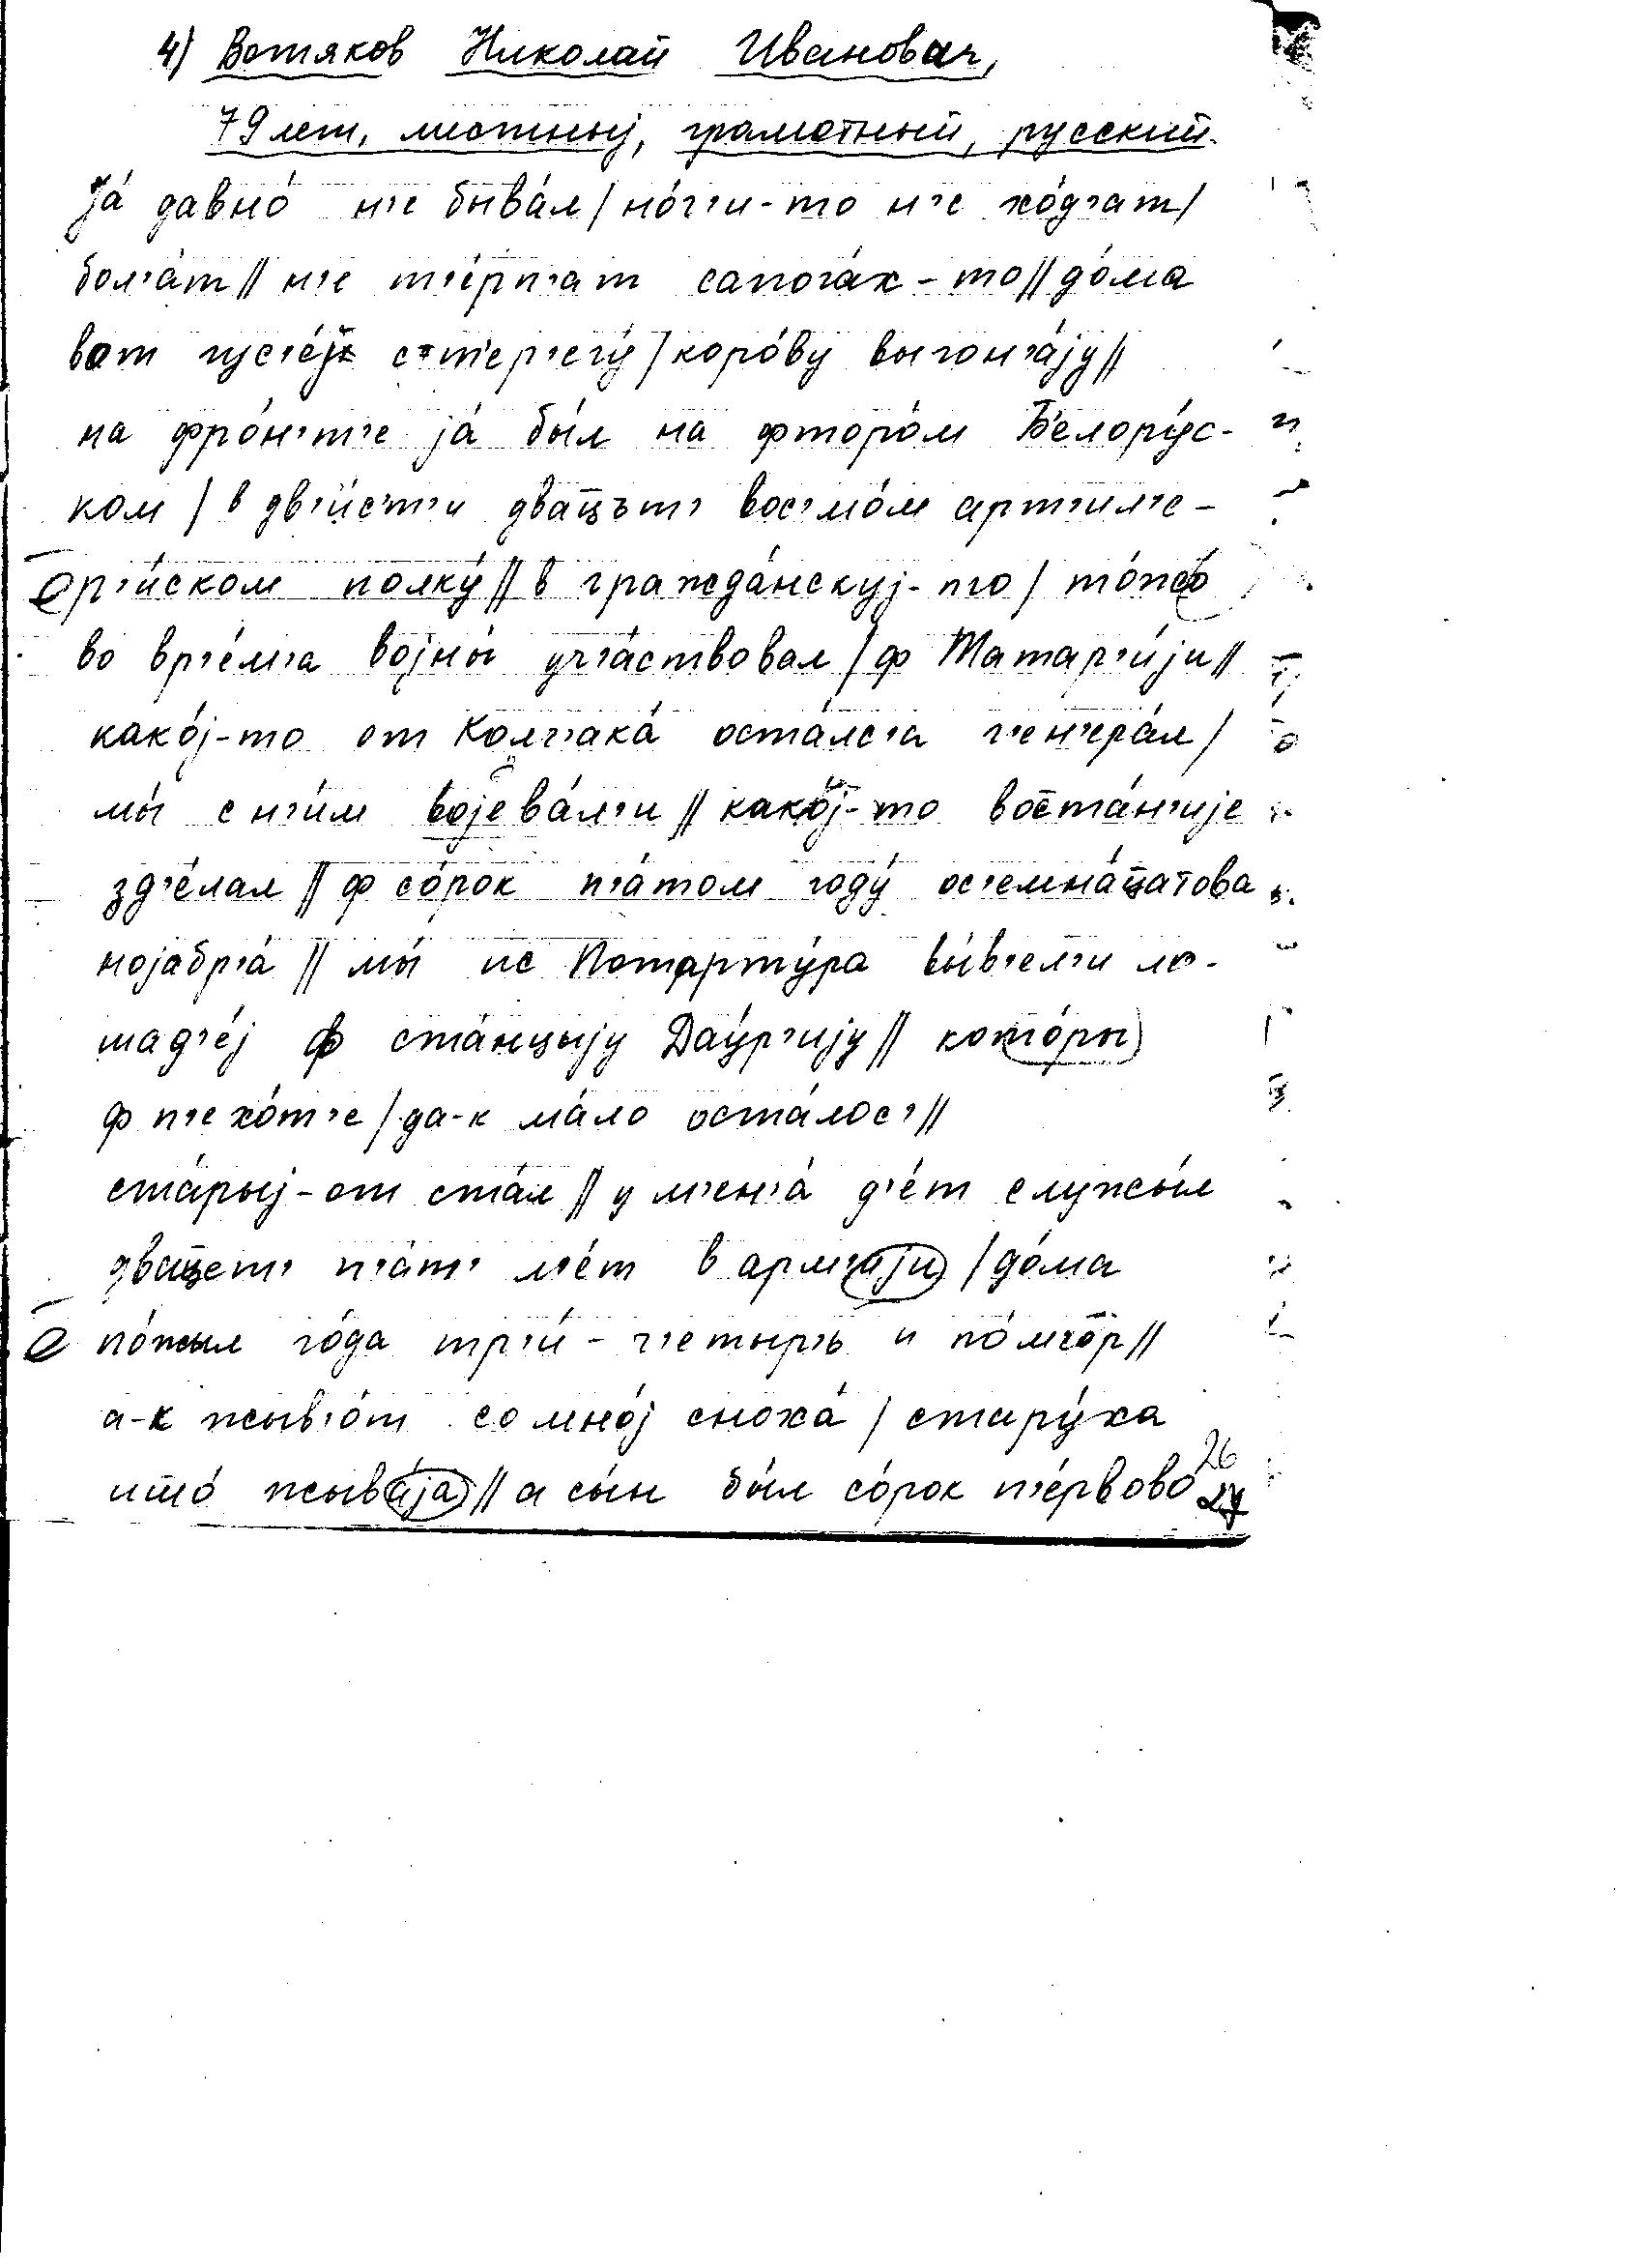 4) Вотяков Николай Иванович,
79 лет, местныj, грамотный, русский.
Jа́ давно́ н'е быва́л / но́г'и-то н'е хо́д'ат /
бол'а́т // н'е т'е́рп'ат сапога́х-то // до́ма
вот гус'е́j ст'ер'егу́ / коро́ву выгон'а́jу //
на фро́н'т'е jа́ бы́л на фторо́м Б'елору́с-
ком / в дв'и́с'т'и два́ц̅ът' вос'мо́м арт'ил'е-
р'и́ском полку́ // в гражда́нскуj-то / то́жо
во вр'е́м'а воjны́ уч'а́ствовал / ф Татар'и́jи //
како́j-то от Колч'ака́ оста́лс'а г'ен'ера́л /
мы́ с н'и́м воjева́л'и // како́j-то воста́н'иjе
зд'е́лал // ф со́рок п'а́том году́ ос'емна́ц̅атова
ноjабр'а́ // мы́ ис Потарту́ра вы́в'ел'и ло-
шад'е́j ф ста́нцыjу Дау́р'иjу // кото́ры
ф п'ехо́т'е / да-к ма́ло оста́лос' //
ста́рыj-от ста́л // у м'ен'а́ д'е́т служы́л
два́ц̅ет' п'а́т' л'е́т в арм'аjи / до́ма
по́жыл го́да тр'и́ - ч'етыр'ь и по́м'о̄р //
а-к жыв'о́т со мно́j сноха́ / стару́ха
иш̅о́ жыва́jа // а сы́н бы́л со́рок п'е́рвово
26
27